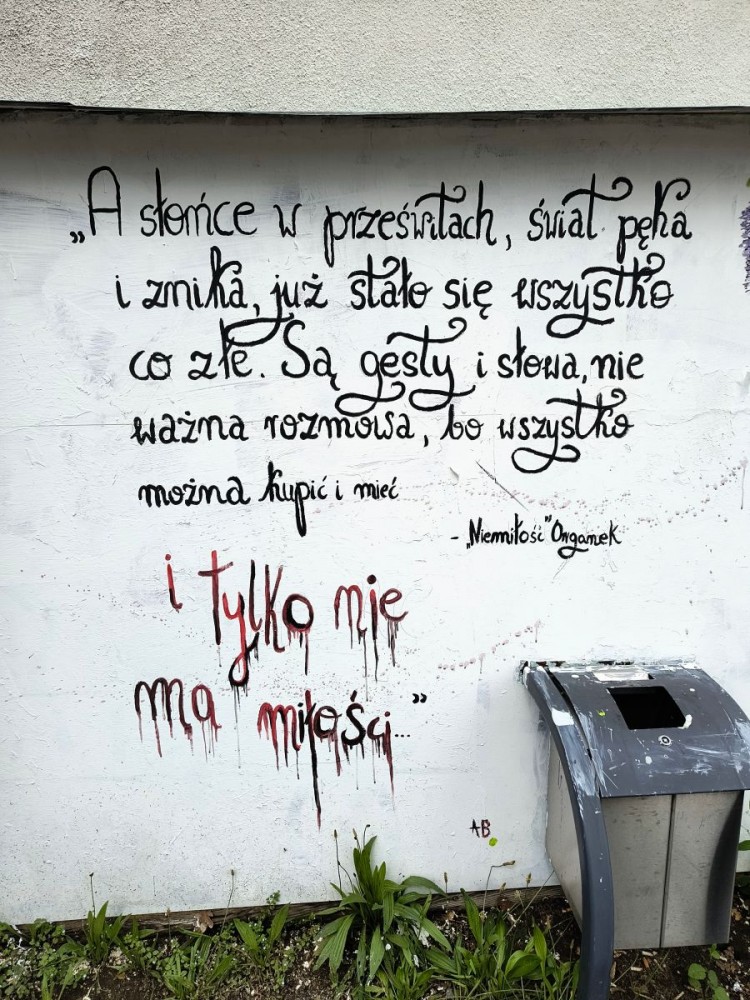 „A słońce w prześwitach, świat pęka
i znika, już stało się wszystko
co złe. Są gesty i słowa, nie
ważna rozmowa, bo wszystko
można kupić i mieć
- „Niemiłość" Organek
i tylko nie
ma miłości..."
AB